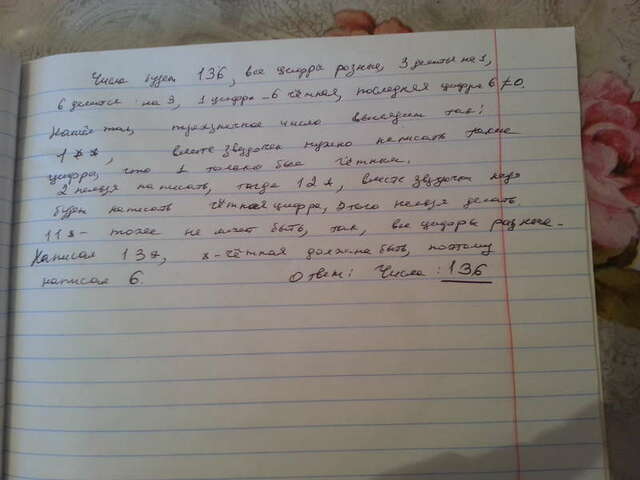 Число будет 136, все цифры разные, 3 делится на 1,
6 делится на 3, 1 цифра - 6 чётная, последняя цифра 6 ≠ 0.
трехзначное число выглядит так:
1 * *, вместо звездочек нужно написать такие
цифры, что 1 только была чётная.
2 нельзя написать, тогда 12*, вместо звездочки надо
будет написать чётная цифра, этого нельзя делать.
11* - тоже не может быть, так, все цифры разные.
Написал 13*, *-чётная должна быть, поэтому
написал 6. Ответ: Число: 136